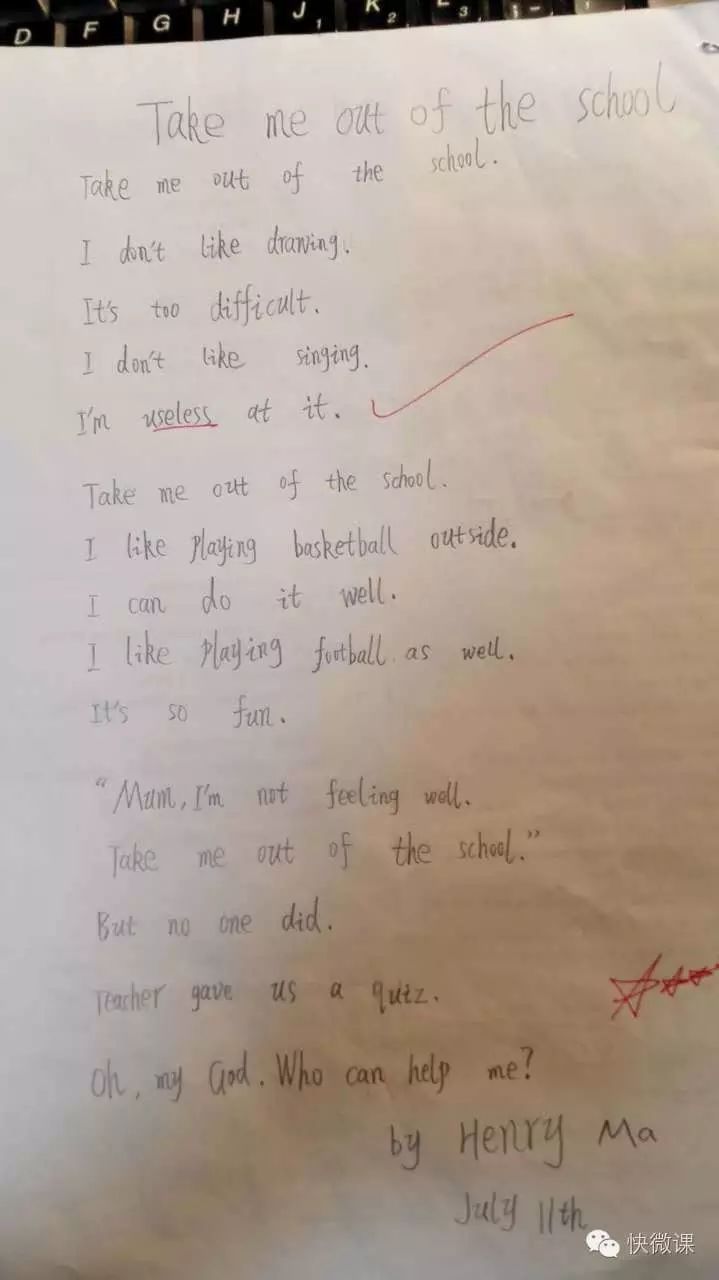 D F G H J 1 K 2 L 3 ; -
Take me out of the school
Take me out of the school.
I don't like drawing.
It's too difficult.
I don't like singing.
I'm useless at it.
Take me out of the school.
I like playing basketball outside.
I can do it well.
I like playing football as well.
It's so fun.
"Mum, I'm not feeling well.
Take me out of the school."
But no one did.
Teacher gave us a quiz.
Oh, my God. Who can help me?
by Henry Ma
July 11th
快微课